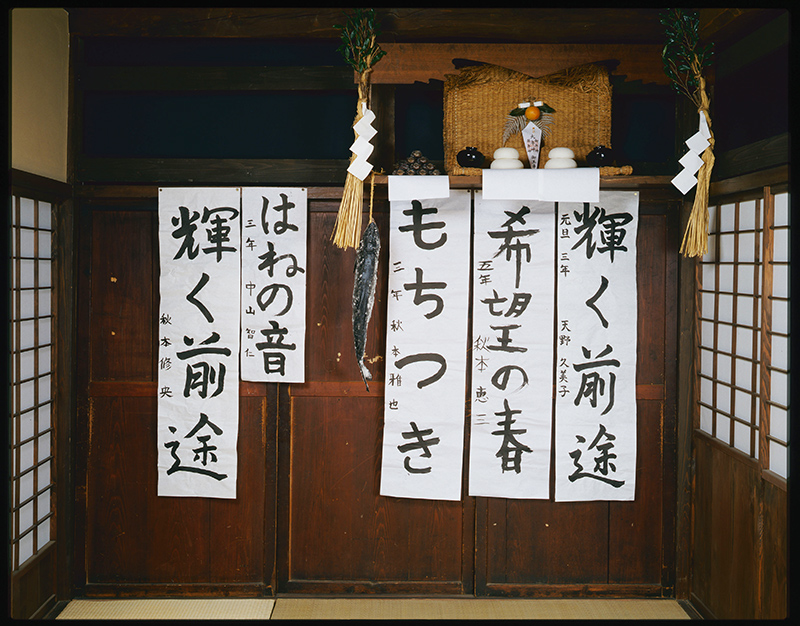 輝く前途
元旦 三年 天野 久美子
希望の春
五年 秋本 恵三
もちつき
三年 秋本雅也
はねの音
三年 中山智仁
輝く前途
秋本修央